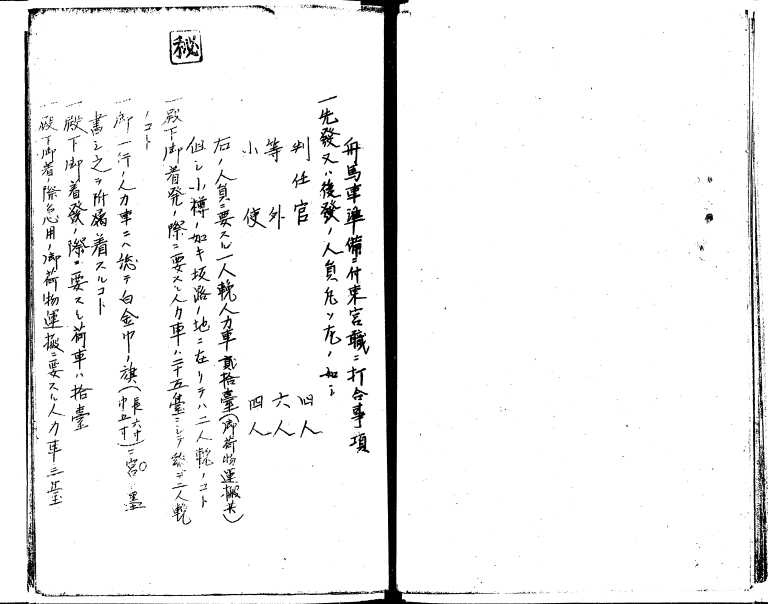 秘
舟馬車準備ニ付東宮職ニ打合事項
一先發又ハ後發ノ人員凡ソ左ノ如シ
判任官 四人
等外 六人
小使 四人
右ノ人員ニ要スル一人輓人力車貳拾臺(御荷物運搬共)
但シ小樽ノ如キ坂路ノ地ニ在リテハ二人輓ノコト
一殿下御着発ノ際ニ要スル人力車ハ二十五臺ニシテ総テ二人輓
ノコト
一御一行ノ人力車ニハ総テ白金巾ノ旗(長六寸巾五寸)ニ宮ノ墨
書シ之ヲ附属着スルコト
一殿下御着發ノ際ニ要スル荷車ハ拾臺
一殿下御着ノ際急用ノ御荷物運搬ニ要スル人力車三臺